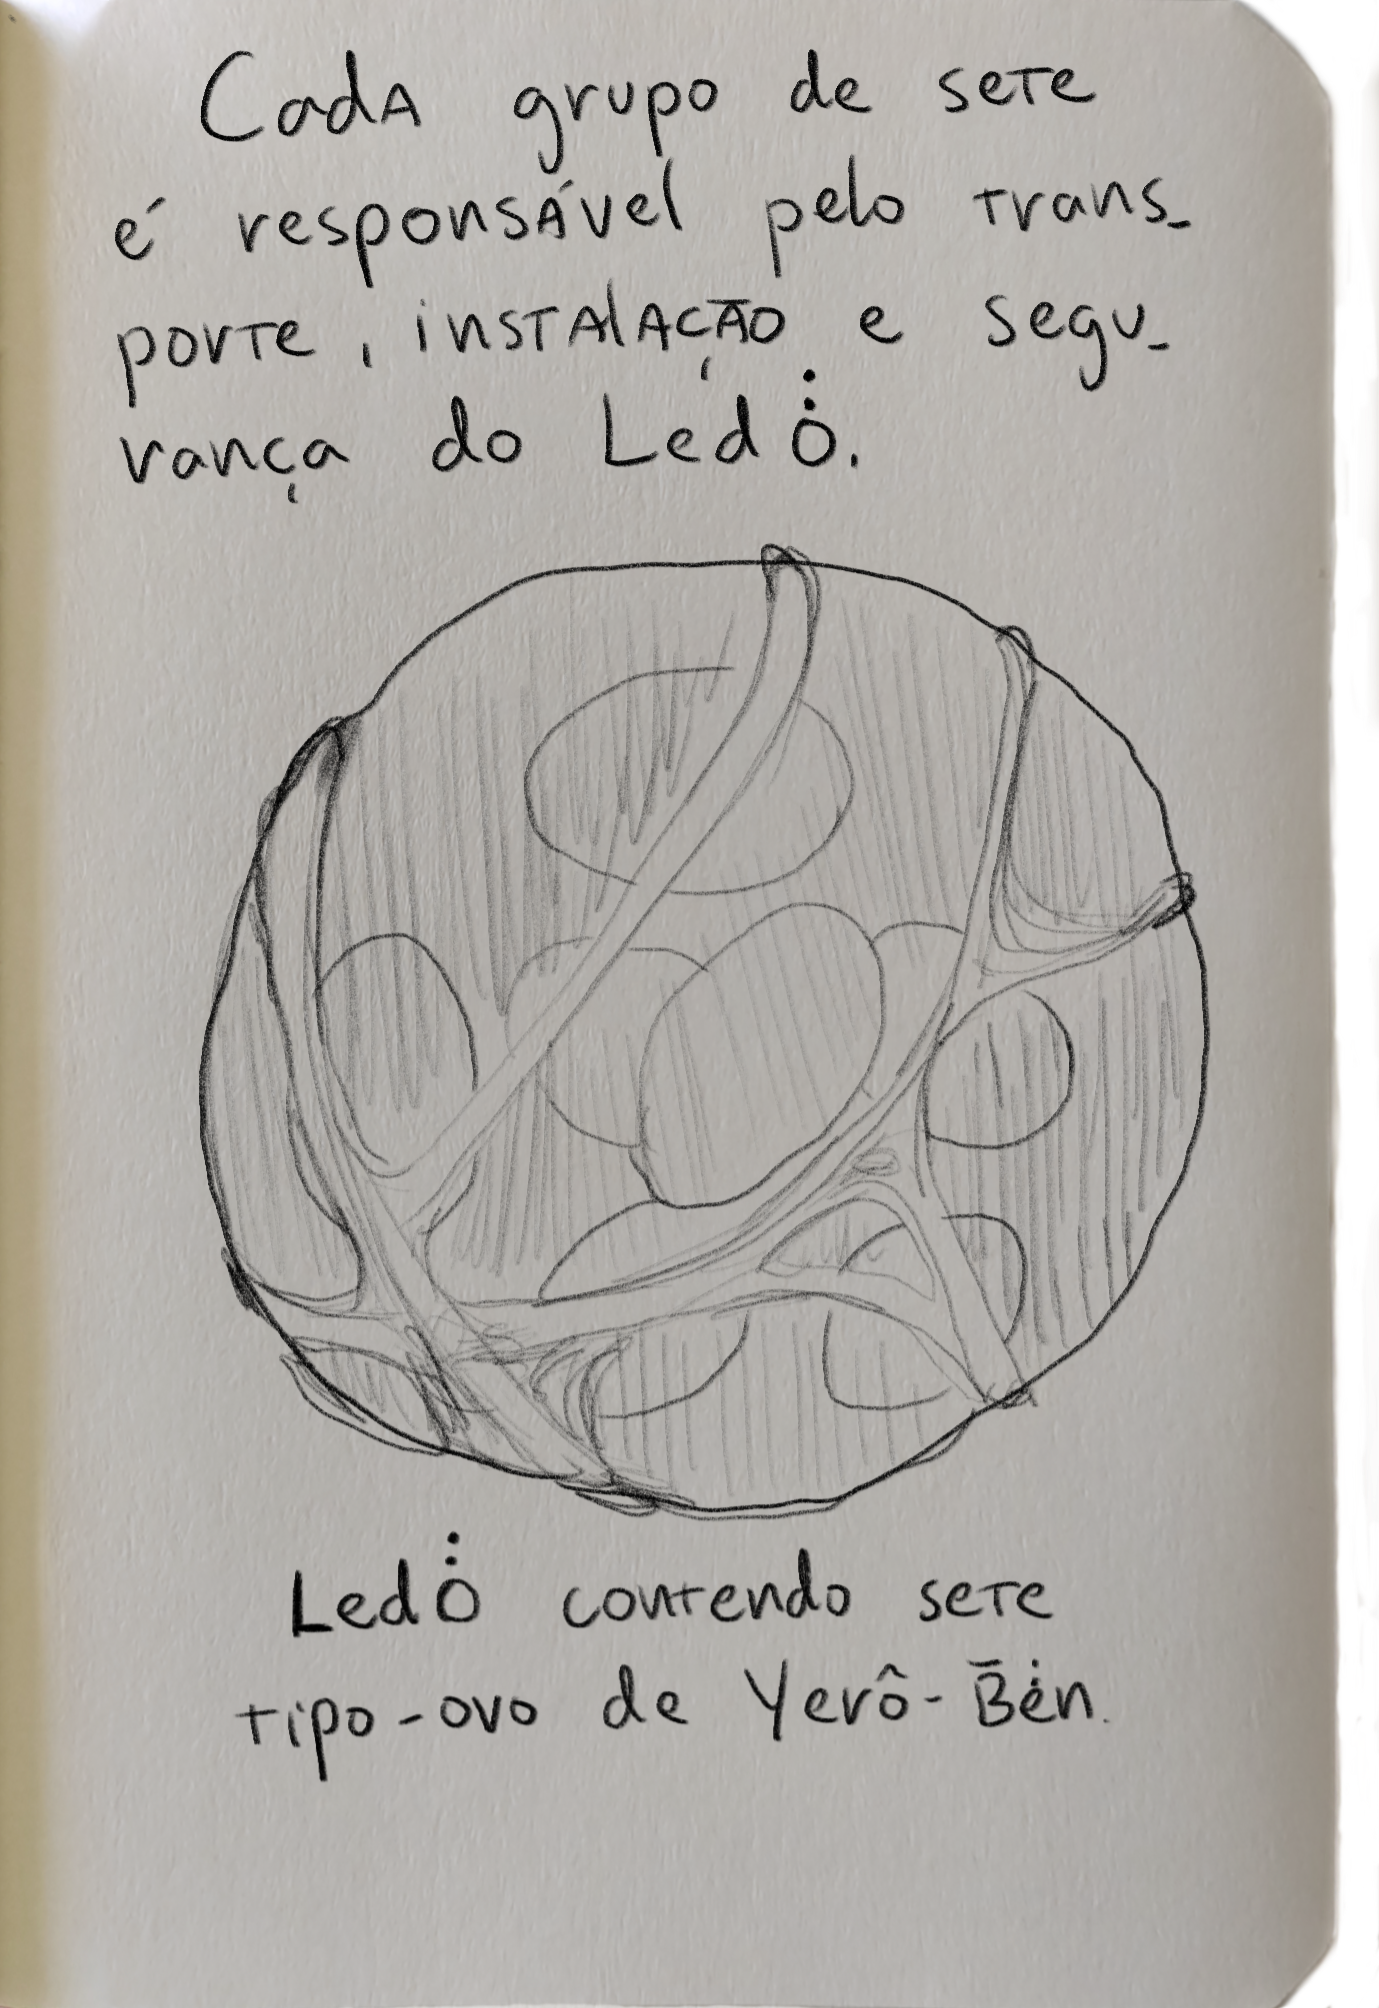 Cada grupo de sete
é responsável pelo trans-
porte, instalação e segu-
rança do Ledȯ̇.
Ledȯ̇ contendo sete
tipo-ovo de Yerô-B̄ė̇n.